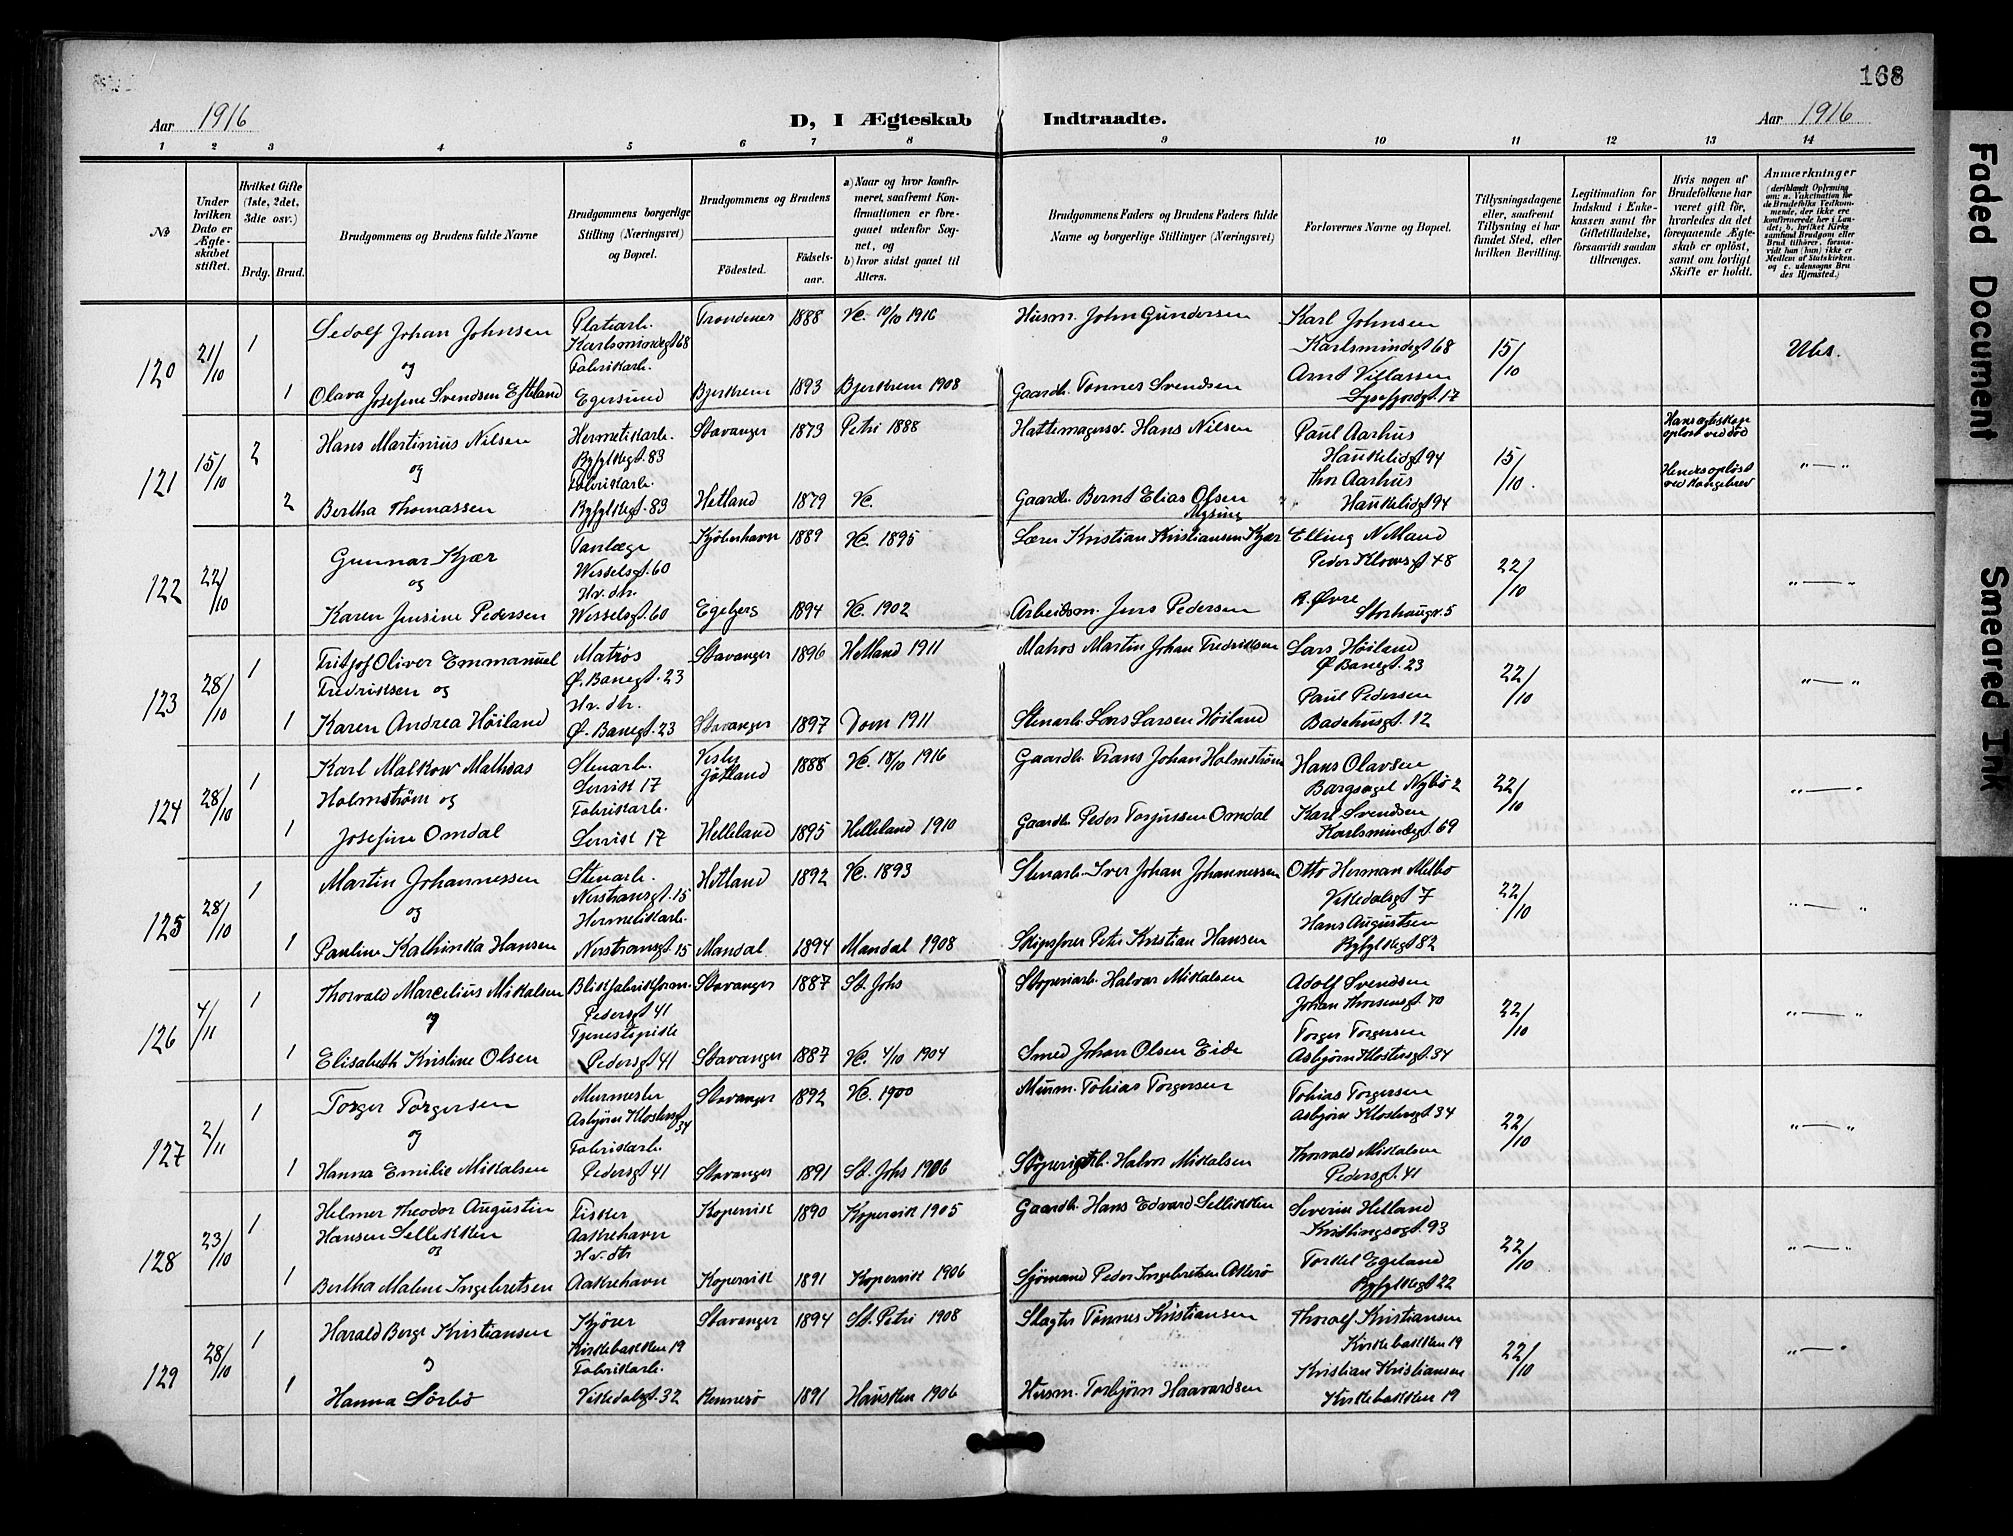 168
Aar 1916
D, I Ægteskab Indtraadte.
Aar 1916
1 2 3 4 5 6 7 8 9 10 11 12 13 14
No
Under hvilken Dato er Ægteskabet stiftet.
Hvilket Gifte (1ste, 2det, 3die osv.)
Brdg. Brud.
Brudgommens og Brudens fulde Navne
Brudgommens borgerlige Stilling (Næringsvei) og Bopæl.
Brudgommens og Brudens
Fødested.
Fødselsaar.
a) Naar og hvor konfirmeret, saafremt Konfirmationen er foregaaet udenfor Sognet, og
b) hvor sidst gaaet til Alters.
Brudgommens Faders og Brudens Faders fulde Navne og borgerlige Stillinger (Næringsvei)
Forlovernes Navne og Bopæl.
Tillysningsdagene eller, saafremt Tillysning ei har fundet Sted, efter hvilken Bevilling.
Legitimation for Indskud i Enkekassen samt for Giftetilladelse, forsaavidt saadan tiltrænges.
Hvis nogen af Brudefolkene har været gift før, hvorledes da det foregaaende Ægteskab er opløst, samt om lovligt Skifte er holdt.
Anmærkninger
120 21/10 1 Sedolf Johan Johnsen Platearb. Trondenes 1888 Vc. 10/10 1916 Husm. John Gundersen Karl Johnsen 15/10 Ubs.
Karlsmindegt 68 Karlsmindegt 68
og Fabrikarb. Arnt Villassen
1 Olava Josefine Svendsen Efteland Egersund Bjerkrem 1893 Bjerkrem 1908 Gaardb. Tønnes Svendsen Lysefjordgt. 17
121 15/10 2 Hans Martinius Nilsen Hermetikarb. Stavanger 1873 Petri 1888 Hattemagersv. Hans Nilsen Paul Aarhus 15/10 „ — „
Ryfylkegt. 83 Haukeligt 94
og Fabrikarb. Thv Aarhus
2 Bertha Thomassen Ryfylkegt. 83 Hetland 1879 Vc. Gaardb. Bernt Elias Olsen Haukeligt 94
122 22/10 Gunnar Kjær Tanlæge Kjøbenhavn 1889 Vc. 1895 Lærer Kristian Kristiansen Kjær Elling Netland 22/10 „ — „
Wesselsgt. 60 Peder Klowsgt 48
og Hv. dtr. R. Øvre
Karen Jensine Pedersen Wesselsgt. 60 Egebjerg 1894 Vc. 1902 Arbeidsm. Jens Pedersen Storhaugv. 5
123 28/10 1 Fritjof Oliver Emmanuel Matros Stavanger 1896 Hetland 1911 Matros Martin Johan Fredriksen Lars Høiland 22/10 „ — „
Fredriksen og Ø. Banegt. 23 Ø Banegt. 23
Hv. dtr. Paul Pedersen
1 Karen Andrea Høiland Ø. Banegt. 23 Stavanger 1897 Dom 1911 Stenarb. Lars Larsen Høiland Badehusgt. 12
124 28/10 1 Karl Malkow Mathias Stenarb. Visby Gøtland 1888 Vc. 18/10 1916 Gaardb. Frans Johan Holmstrøm Hans Olavsen 22/10 „ — „
Holmstrøm og Lervik 17 Nybø 2
Fabrikarb. Karl Svendsen
1 Josefine Omdal Lervik 17 Helleland 1895 Helleland 1910 Gaardb. Peder Torjussen Omdal Karlsmindegt. 69
125 28/10 1 Martin Johannessen Stenarb. Hetland 1892 Vc. 1893 Stenarb. Iver Johan Johannessen Otto Herman Melbø 22/10 „ — „
Nerstransgt. 15 Vikedalsgt 7
og Hermetikarb. Hans Augustsen
1 Pauline Kathinka Hansen Nerstransgt. 15 Mandal 1894 Mandal 1908 Skipsfører Peter Kristian Hansen Ryfylkegt 82
126 4/11 1 Thorvald Marcelius Mikalsen Blikfabrikform. Stavanger 1887 St. Johs Støperiarb. Halvor Mikalsen Adolf Svendsen 22/10 „ — „
Pedersgt 41 Johan Thorsensgt. 40
og Tjenestepike Torger Torgersen
1 Elisabeth Kristine Olsen Pedersgt 41 Stavanger 1887 Vc. 4/10 1904 Smed Johan Olsen Eide Asbjørn Klostersgt. 34
127 2/11 1 Torger Torgersen Murmester Stavanger 1892 Vc. 1900 Murm. Tobias Torgersen Tobias Torgersen 22/10 „ — „
Asbjørn Klostersgt 34 Asbjørn Klostersgt 34
og Fabrikarb. Thorvald Mikalsen
1 Hanna Emilie Mikalsen Pedersgt 41 Stavanger 1891 St. Johs 1906 Halvor Mikalsen Pedersgt. 41
128 23/10 1 Helmer Theodor Augustin Fisker Kopervik 1890 Kopervik 1905 Gaardb. Hans Edvard Sellikken Severin Hetland 22/10 „ — „
Hansen Sellikken Aakrehavn 93
og Hv. dtr Torkel Egeland
1 Bertha Malene Ingebretsen Aakrehavn Kopervik 1891 Kopervik 1906 Sjømand Peder Ingebretsen Aakrø Ryfylkegt 22
129 28/10 1 Harald Berge Kristiansen Kjører Stavanger 1894 St. Petri 1908 Slagter Tønnes Kristiansen Thoralf Kristiansen 22/10 „ — „
Kirkebakken 19 Kirkebakken 19
og Fabrikarb. Kristian Kristiansen
1 Hanna Sørbø Vikedalsgt. 32 Rennesø 1891 Hausken 1906 Husm. Torbjørn Haavardsen Kirkebakken 19
Faded Document
Smeared Ink